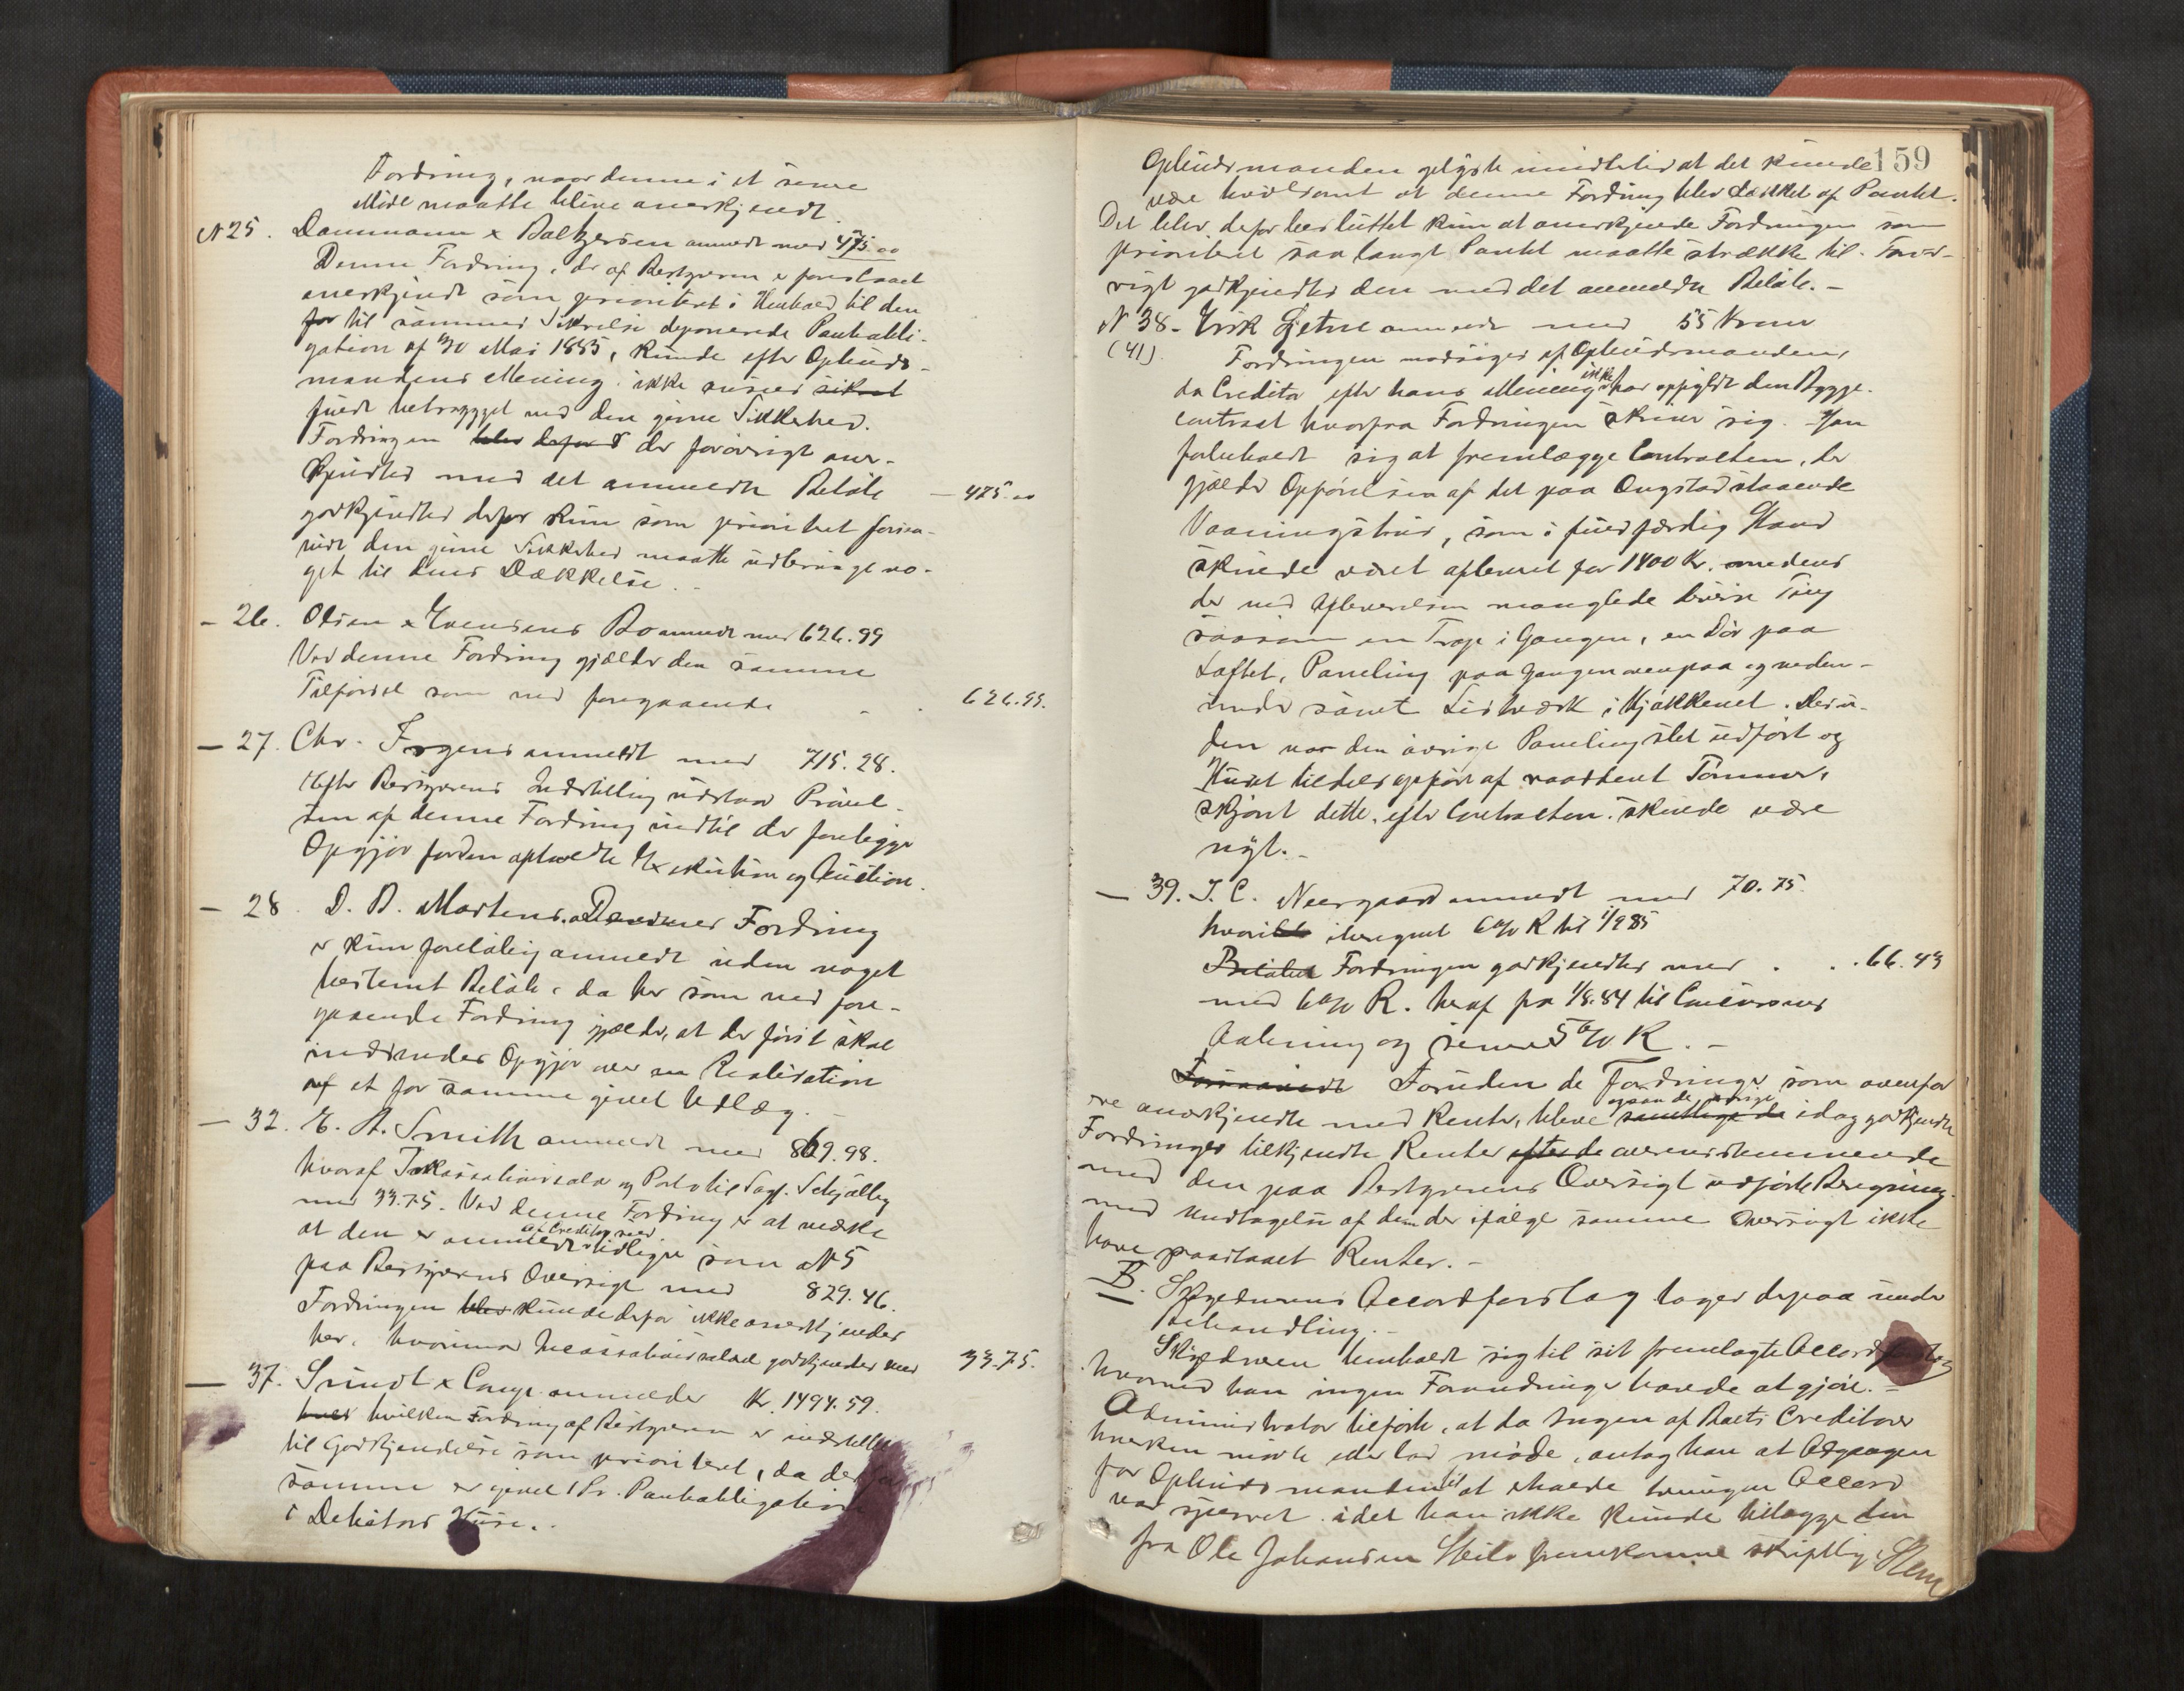 Fordring, naar denne i et senere
Møde maatte blive anerkjendt.
N 25. Dammann & Baltzersen anmeldt med 475.00
Denne Fordring, der af Bestyreren er foreslaaet
anerkjendt som prioriteret i Henhold til den
for til sammes Sikkrelse deponerede Pantobli-
gation af 20 Mai 1885, kunde efter Opbuds-
mandens Mening ikke ansees sikret
fuldt betrygget ved den givne Sikkerhed.
Fordringen blev derfor d der forøvrigt aner-
kjendtes med det anmeldte Beløb — 475.00
godkjendtes derfor kun som prioritet forsaa-
vidt den givne Sikkerhed maatte udbringe no-
get til dens Dækkelse. -
- 26. Olsen & Evensens Bo anmeldt med 626.99
Ved denne Fordring gjælder den samme
Tilførsel som ved foregaaende - . 626.99.
- 27. Chr. Irgens anmeldt med 715.28.
Efter Bestyrerens Indstilling udstaar Prøvel-
sen af denne Fordring indtil der foreligger
Opgjør for den afholdte Exekution og Auction.
- 28. D. D. Martens. Fordring
er kun foreløbig anmeldt uden noget
bestemt Beløb, da her som ved fore-
gaaende Fordring gjælder, at der først skal
indsendes Opgjør over en Realisation
af et for samme givet Udlæg. -
- 32. E. A. Smith anmeldt med 869.98.
hvoraf Inkassationssalær og Porto til Sagf. Schjølberg
med 33.75. Ved denne Fordring er at mærke
af Creditor med
at den er anmeldt tidligere som N 5
paa Bestyrerens Oversigt med 829.46.
Fordringen blev kunde derfor ikke anerkjendes
her, hvorimod Incassationssalæret godkjendes med 33.75.
- 37. Sundt & Comp. anmelder Kr. 1494.59.
hvilken Fordring af Bestyreren er indstillet
til Godkjendelse som prioriteret, da der
samme er givet 1 Pr. Pantobligation
i Debitors Huse. -
159
Opbudsmanden oplyste imidlertid at det kunde
være tvilsomt at denne Fordring blev dækket af Pantet.
Det blev derfor besluttet kun at anerkjende Fordringen som
prioriteret saa langt Pantet maatte strække til. Forøv-
rigt godkjendtes den med det anmeldte Beløb. -
N 38. Erik Gjetne anmeldt med 55 Kroner
(41) Fordringen modsiges af Opbudsmanden,
ikke
da Creditor efter hans Mening har opfyldt den Bygge-
contract hvorfra Fordringen skriver sig. Han
forbeholdt sig at fremlægge Contracten, der
gjælder Opførelsen af det paa Ongstad staaende
Vaaningshus, som i fuldfærdig Stand
skulde været afleveret for 1400 Kr. medens
der ved Afleverelsen manglede diverse Ting
saasom en Trap i Gangen, en Dør paa
Loftet, Paneling paa Gangen ovenpaa og neden-
under samt Listværk i Kjøkkenet. Desu-
den var den øvrige Paneling slet udført og
Huset tildels opført af raaddent Tømmer,
skjønt dette, efter Contracten, skulde være
nyt. -
- 39. J. C. Neergaard anmeldt med 70.75.
hvori iberegnet 6% R til 1/9 85
Beløbet Fordringen godkjendtes med . . . 66.43
med 6% R. heraf fra 1/8.84 til Concursens
Aabning og senere 5% R. -
Forsaavidt Foruden de Fordringer som ovenfor
ogsaa de øvrige
ere anerkjendte med Renter, bleve samtlige de idag godkjendte
Fordringer tilkjendte Renter efter de overensstemmende
med den paa Bestyrerens Oversigt udførte Beregning.
med Undtagelse af dem der ifølge samme Oversigt ikke
have paastaaet Renter. -
B. Skyldnerens Accordforslag toges derpaa under
Behandling. -
Skyldneren henholdt sig til sit fremlagte Accordforslag
hvorved han ingen Forandringer havde at gjøre. -
Administrator tilførte, at da Ingen af Boets Creditorer
hverken mødte eller lod møde, antog han at Adgangen
for Opbudsmanden til at erholde tvungen Accord
var spærret idet han ikke kunde tillægge den
fra Ole Johansen Heilo fremkomne skriftlig Stem